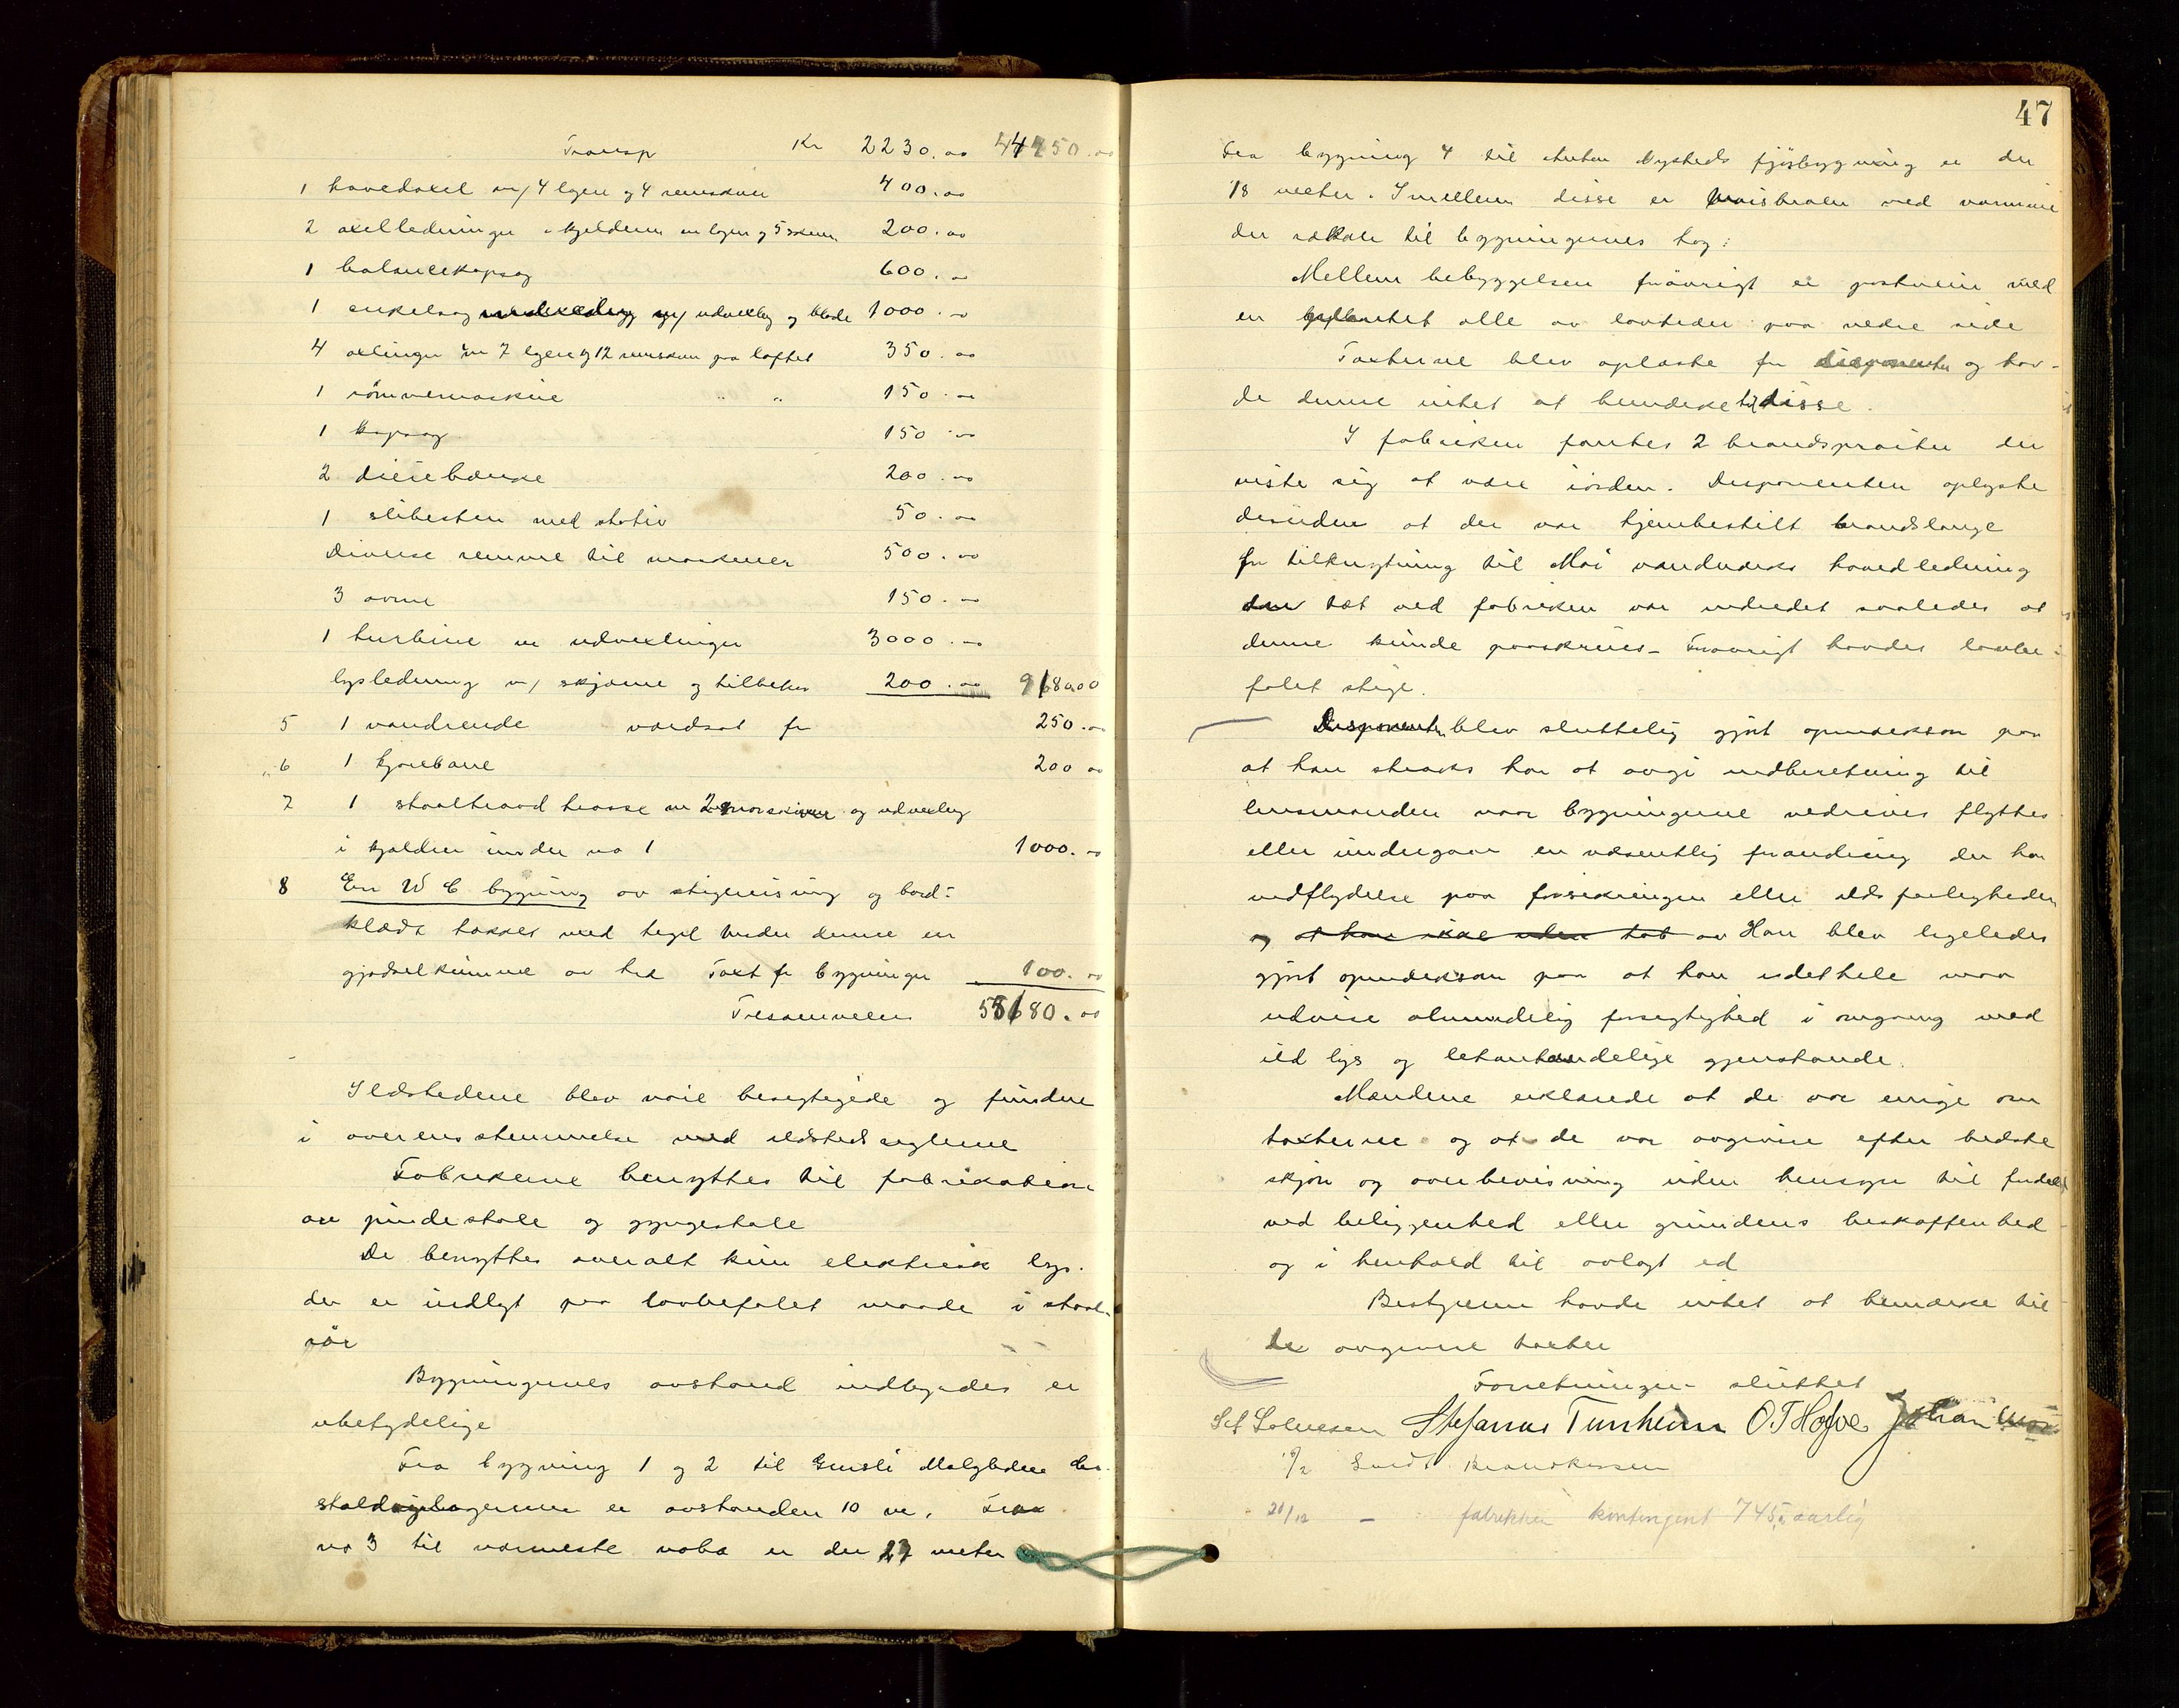 Transp Kr 2230.00 44450.00
1 hovedaxel m/ 4 lgere og 4 remskiver 400.00
2 axelledninger i kjelderen m lagre og 5 skiver 200.00
1 balancekapsag 600.00
1 enkelsag m/ udvexlig og blade 1000.00
4 axlinger m 7 lgere og 12 remskiver paa loftet 350.00
1 150.00
1 kapsag 150.00
2 dreiebænke 200.00
1 slibesten med stativ 50.00
Diverse remme til maskiner 500.00
3 ovne 150.00
1 turbine m udvexlinger 3000.00
lysledning m/ skjærme og tilbehør 200.00 9680.00
5 1 vandrende værdsat fr 250.00
6 1 kjørebane 200 00
7 1 staaltraad trosse m 2 snorskiver og udvexling
i kjælder under no 1 1000.00
8 En W C bygning av stigreisning og bord-
klædt takket med tegl under denne en
gjødselkumme av Taxt fr bygninger 100.00
Tilsammen 55680.00
Ildstedene blev nøie besigtigede og fundne
i overensstemmelse med ildstedsreglerne
Fabrikerne benyttes til fabrikation
av pindestole og gyngestole
De benyttes overalt kun elektrisk lys.
der er indlagt paa lovbefalet maade i staal-
rør
Bygningernes avstand indbyrdes er
ubetydelige
Fra bygning 1 og 2 til
er avstanden 10 m. Fra
no 3 til nærmeste nabo er der 27 meter
47
Fra bygning 4 til Anton Nysteds fjøsbygning er der
18 meter. Imellem disse er
der rækker til bygningernes tag.
Mellem bebyggelsen forøvrigt er postveien med
en alle av løvtrær paa nedre side
Taxterne blev oplæste for disponenten og hav-
de denne intet at bemærke til disse.
I fabriken fantes 2 brandsprøiter der
viste sig at være iorden. Disponenten oplyste
desuden at der var hjembestilt brandslange
for tilknytning til Moi vandverks hovedledning
der tæt ved fabriken var indredet saaledes at
denne kunde paaskrues. Forøvrigt havdes lovbe-
falet stige.
Disponenten blev sluttelig gjort opmerksom paa
at han straks har at avgi indberetning til
lensmanden naar bygningerne nedrives flyttes
eller undergaar en væsentlig forandring der har
indflydelse paa forsikringen eller ildsfarligheden
og at han ikke uden tab av Han blev ligeledes
gjort opmerksom paa at han idethele maa
udvise almindelig forsigtighed i omgang med
ild lys og letantændelige gjenstande.
Mændene erklærede at de var enige om
taxterne og at de var avgivne efter bedste
skjøn og overbevisning uden hensyn til fordele
ved beliggenhed eller grundens beskaffenhed
og i henhold til avlagt ed
Bestyreren havde intet at bemærke til
de avgivne taxter
Forretningen sluttet
Stefanus Tunheim O. T. Hofve Johan
Brandkassen
20/12 - fabrikken kontingent 745 aarlig